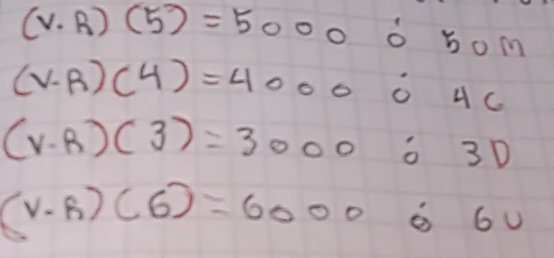 (V.R)(5)=5000 ó 50M
(V.R)(4)=4000 ó 4C
(V.R)(3)=3000 ó 3D
(V.R)(6)=6000 ó 6U